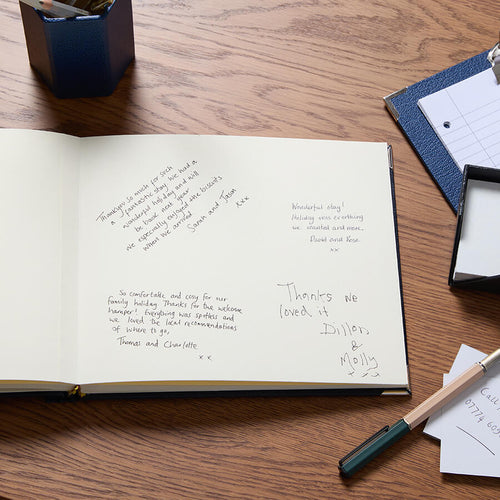 Thankyou so much for such
a fantastic stay. We had a
wonderful holiday and will
be back next year
We especially enjoyed the biscuits
when we arrived
Sarah and Jason
xxx
Wonderful stay!
Holiday was everything
we wanted and more.
David and Rose.
xx
So comfortable and cosy for our
family holiday. Thanks for the welcome
hamper! Everything was spotless and
we loved the local recommendations
of where to go,
Thomas and Charlotte
x x
Thanks we
loved it
Dillon
&
Molly
x x x
Call
07774 609